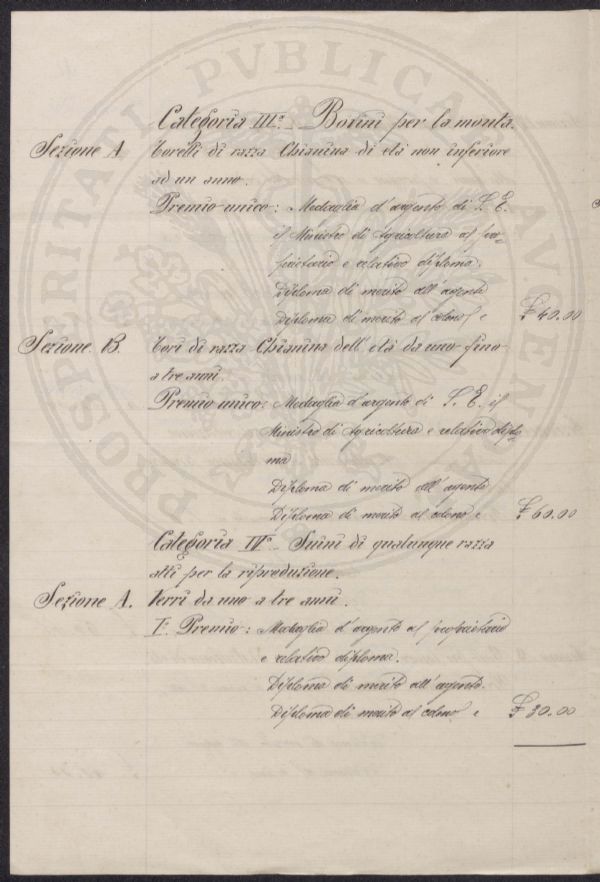 PROSPERITATI PVBLICAE AVGENDAE
Categoria III.ª Bovini per la monta.
Sezione A Torelli di razza Chianina di età non inferiore
ad un anno.
Premio unico: Medaglia d'argento di S. E.
il Ministro di Agricoltura al pro-
prietario e relativo diploma.
Diploma di merito all'agente
Diploma di merito al colono e £ 40.00
Sezione B. Tori di razza Chianina dell'età da uno fino
a tre anni.
Premio unico: Medaglia d'argento di S. E. il
Ministro di Agricoltura e relativo diplo-
ma
Diploma di merito all'agente
Diploma di merito al colono e £ 60.00
Categoria IV.ª Suini di qualunque razza
atti per la riproduzione.
Sezione A. Verri da uno a tre anni.
I.º Premio: Medaglia d'argento al proprietario
e relativo diploma.
Diploma di merito all'agente.
Diploma di merito al colono e £ 30.00